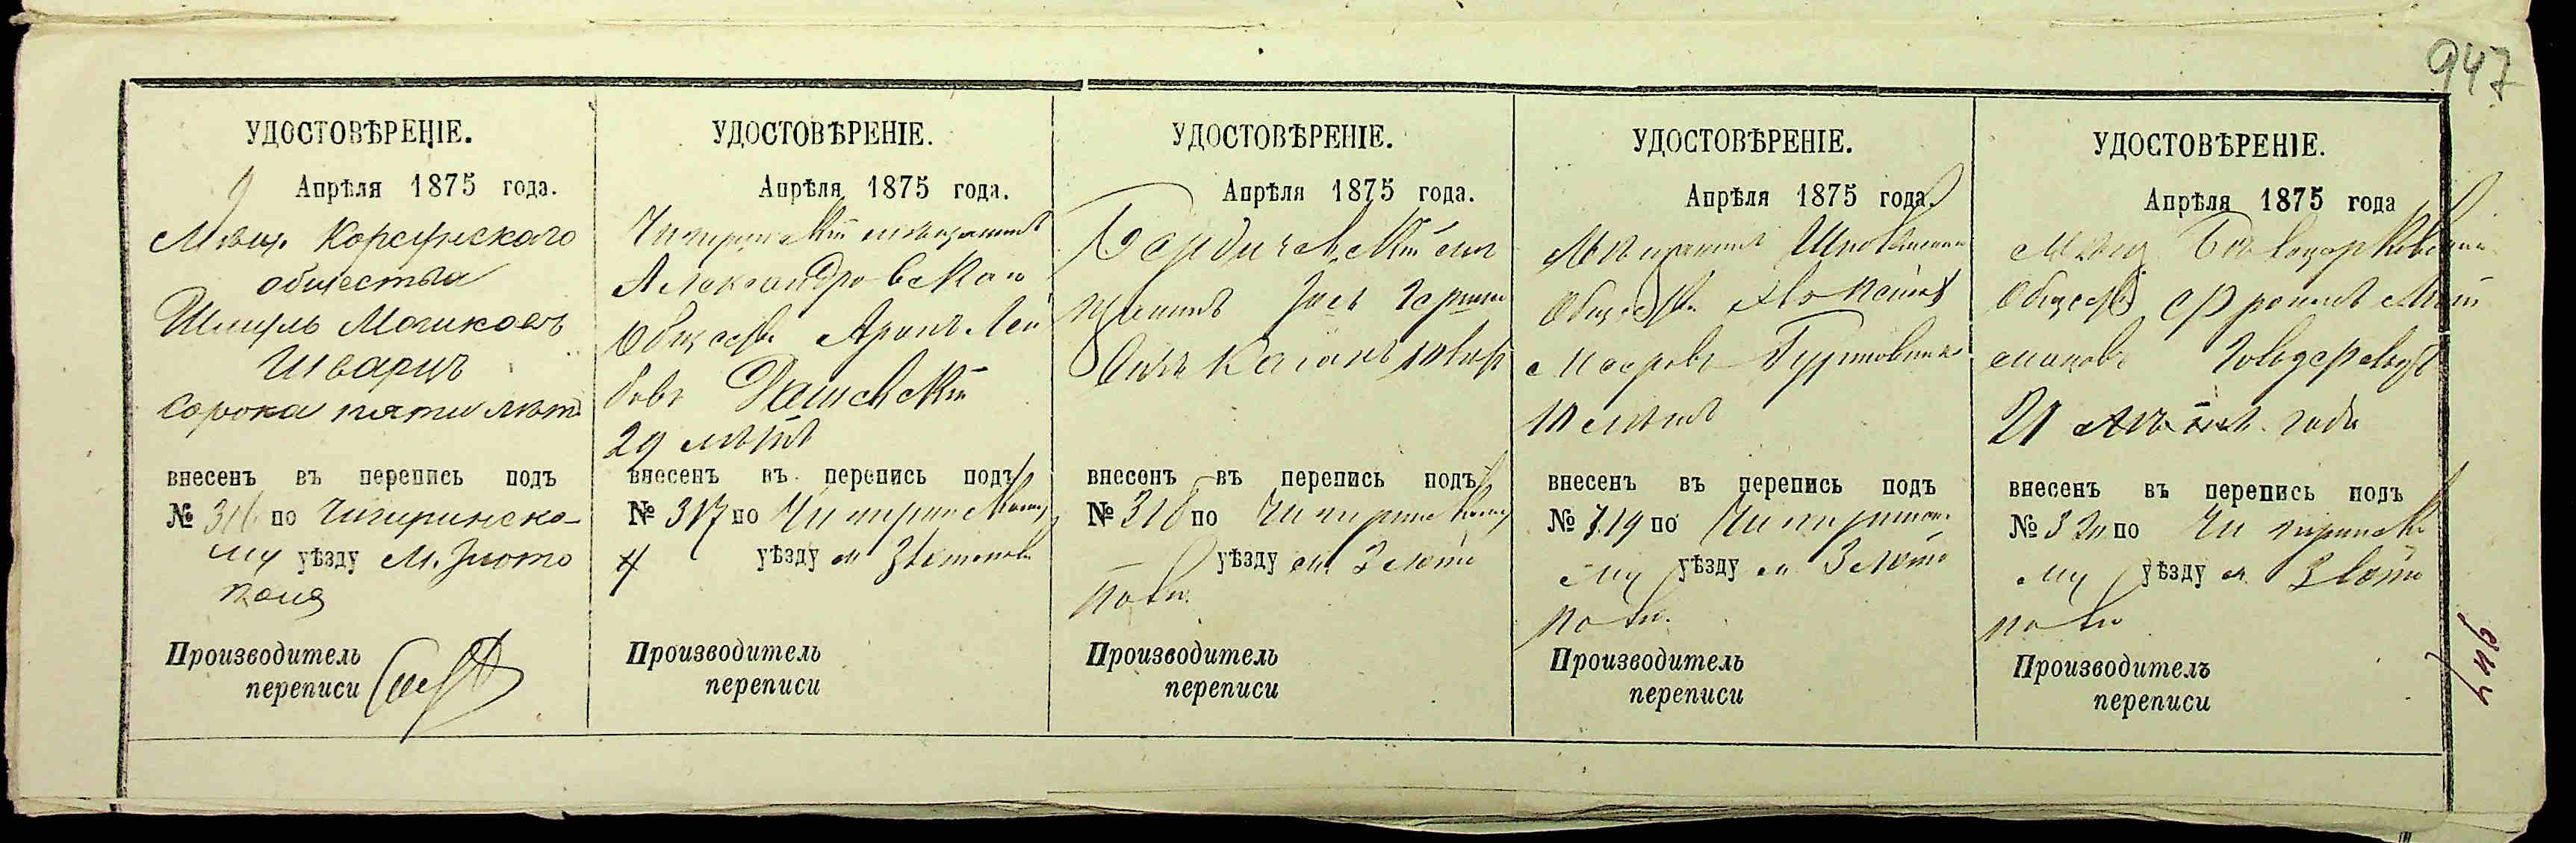 947
УДОСТОВѢРЕНІЕ.
9 Апрѣля 1875 года.
Мѣщ. Корсунскаго
общества
Шмуль Мошковъ
Шварцъ
сорока пяти лѣтъ
внесенъ въ перепись подъ
№ 316 по Чигиринско-
му уѣзду М. Злото
поля
Производитель
переписи
УДОСТОВѢРЕНІЕ.
Апрѣля 1875 года.
Чигиринскій мѣщанинъ
Александровскаго
Общества Аронъ Лей
бовъ Дашевскій
29 лѣтъ
внесенъ въ перепись подъ
№ 317 по Чигиринскому
уѣзду м Златополь
Производитель
переписи
УДОСТОВѢРЕНІЕ.
Апрѣля 1875 года.
Бердичевскій мѣ
щанинъ Іось Герш
внесенъ въ перепись подъ
№ 318 по Чигиринскому
уѣзду м. Злато
поль.
Производитель
переписи
УДОСТОВѢРЕНІЕ.
Апрѣля 1875 года.
Мѣщанинъ
Общества
Мееровъ
лѣтъ
внесенъ въ перепись подъ
№ 319 по Чигиринско
му уѣзду м Злато
поль.
Производитель
переписи
УДОСТОВѢРЕНІЕ.
Апрѣля 1875 года
Мѣщ Бѣлоцерковскаго
Общества Фроимъ
21 года
внесенъ въ перепись подъ
№ 320 по Чигиринско
му уѣзду м. Злато
поль
Производитель
переписи